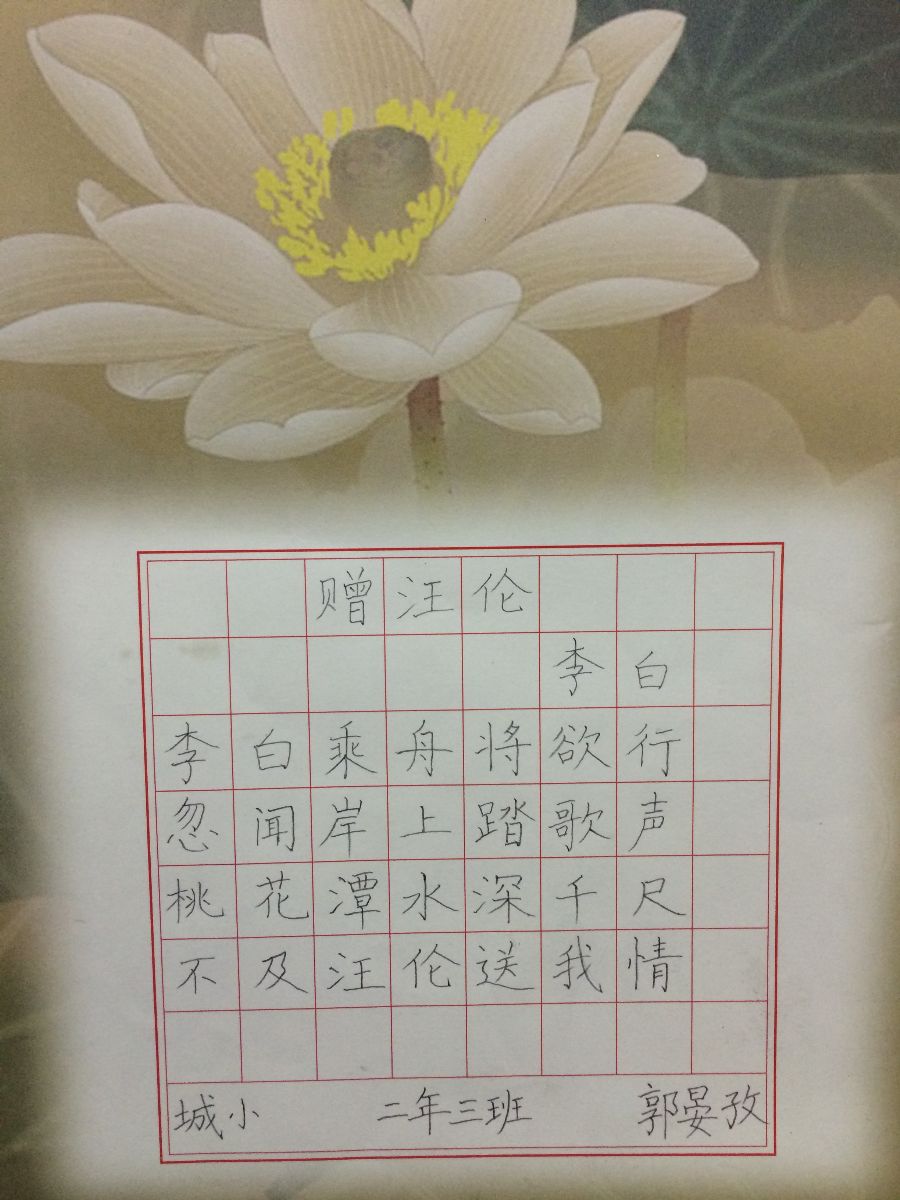 赠汪伦
李白
李白乘舟将欲行
忽闻岸上踏歌声
桃花潭水深千尺
不及汪伦送我情
城小 二年三班 郭晏孜